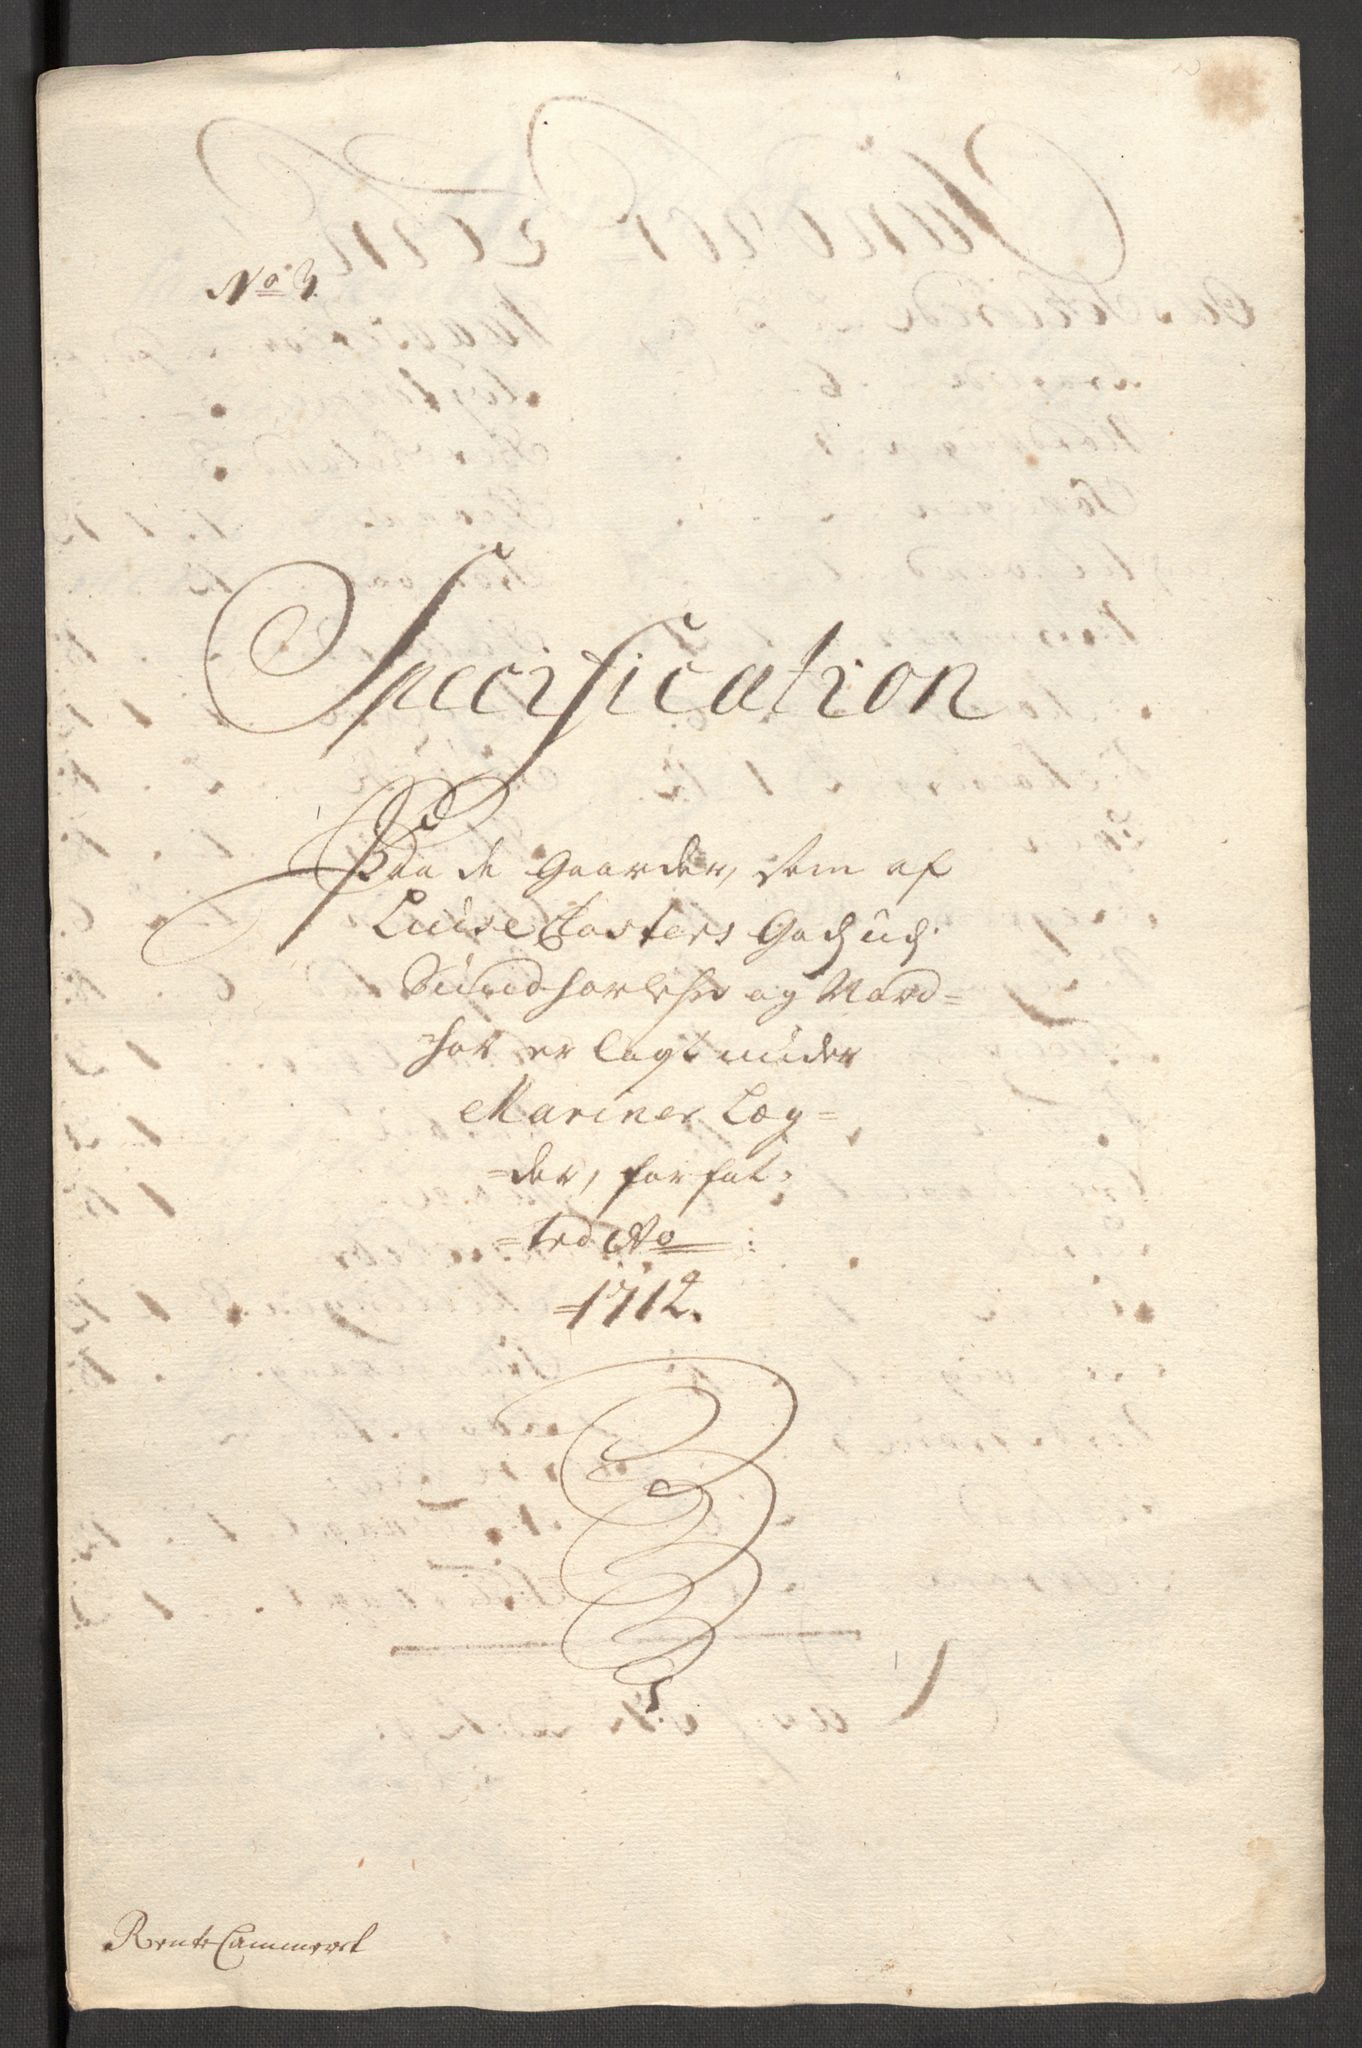 No 3.
Specification
Paa de Gaarder, som af
Luise Closters Godz udi
Sundhorlehn og Nord=
hor er lagt under
Mariner Læg=
=der, forfat=
=ted Ao:
=1712.
RenteCammeret